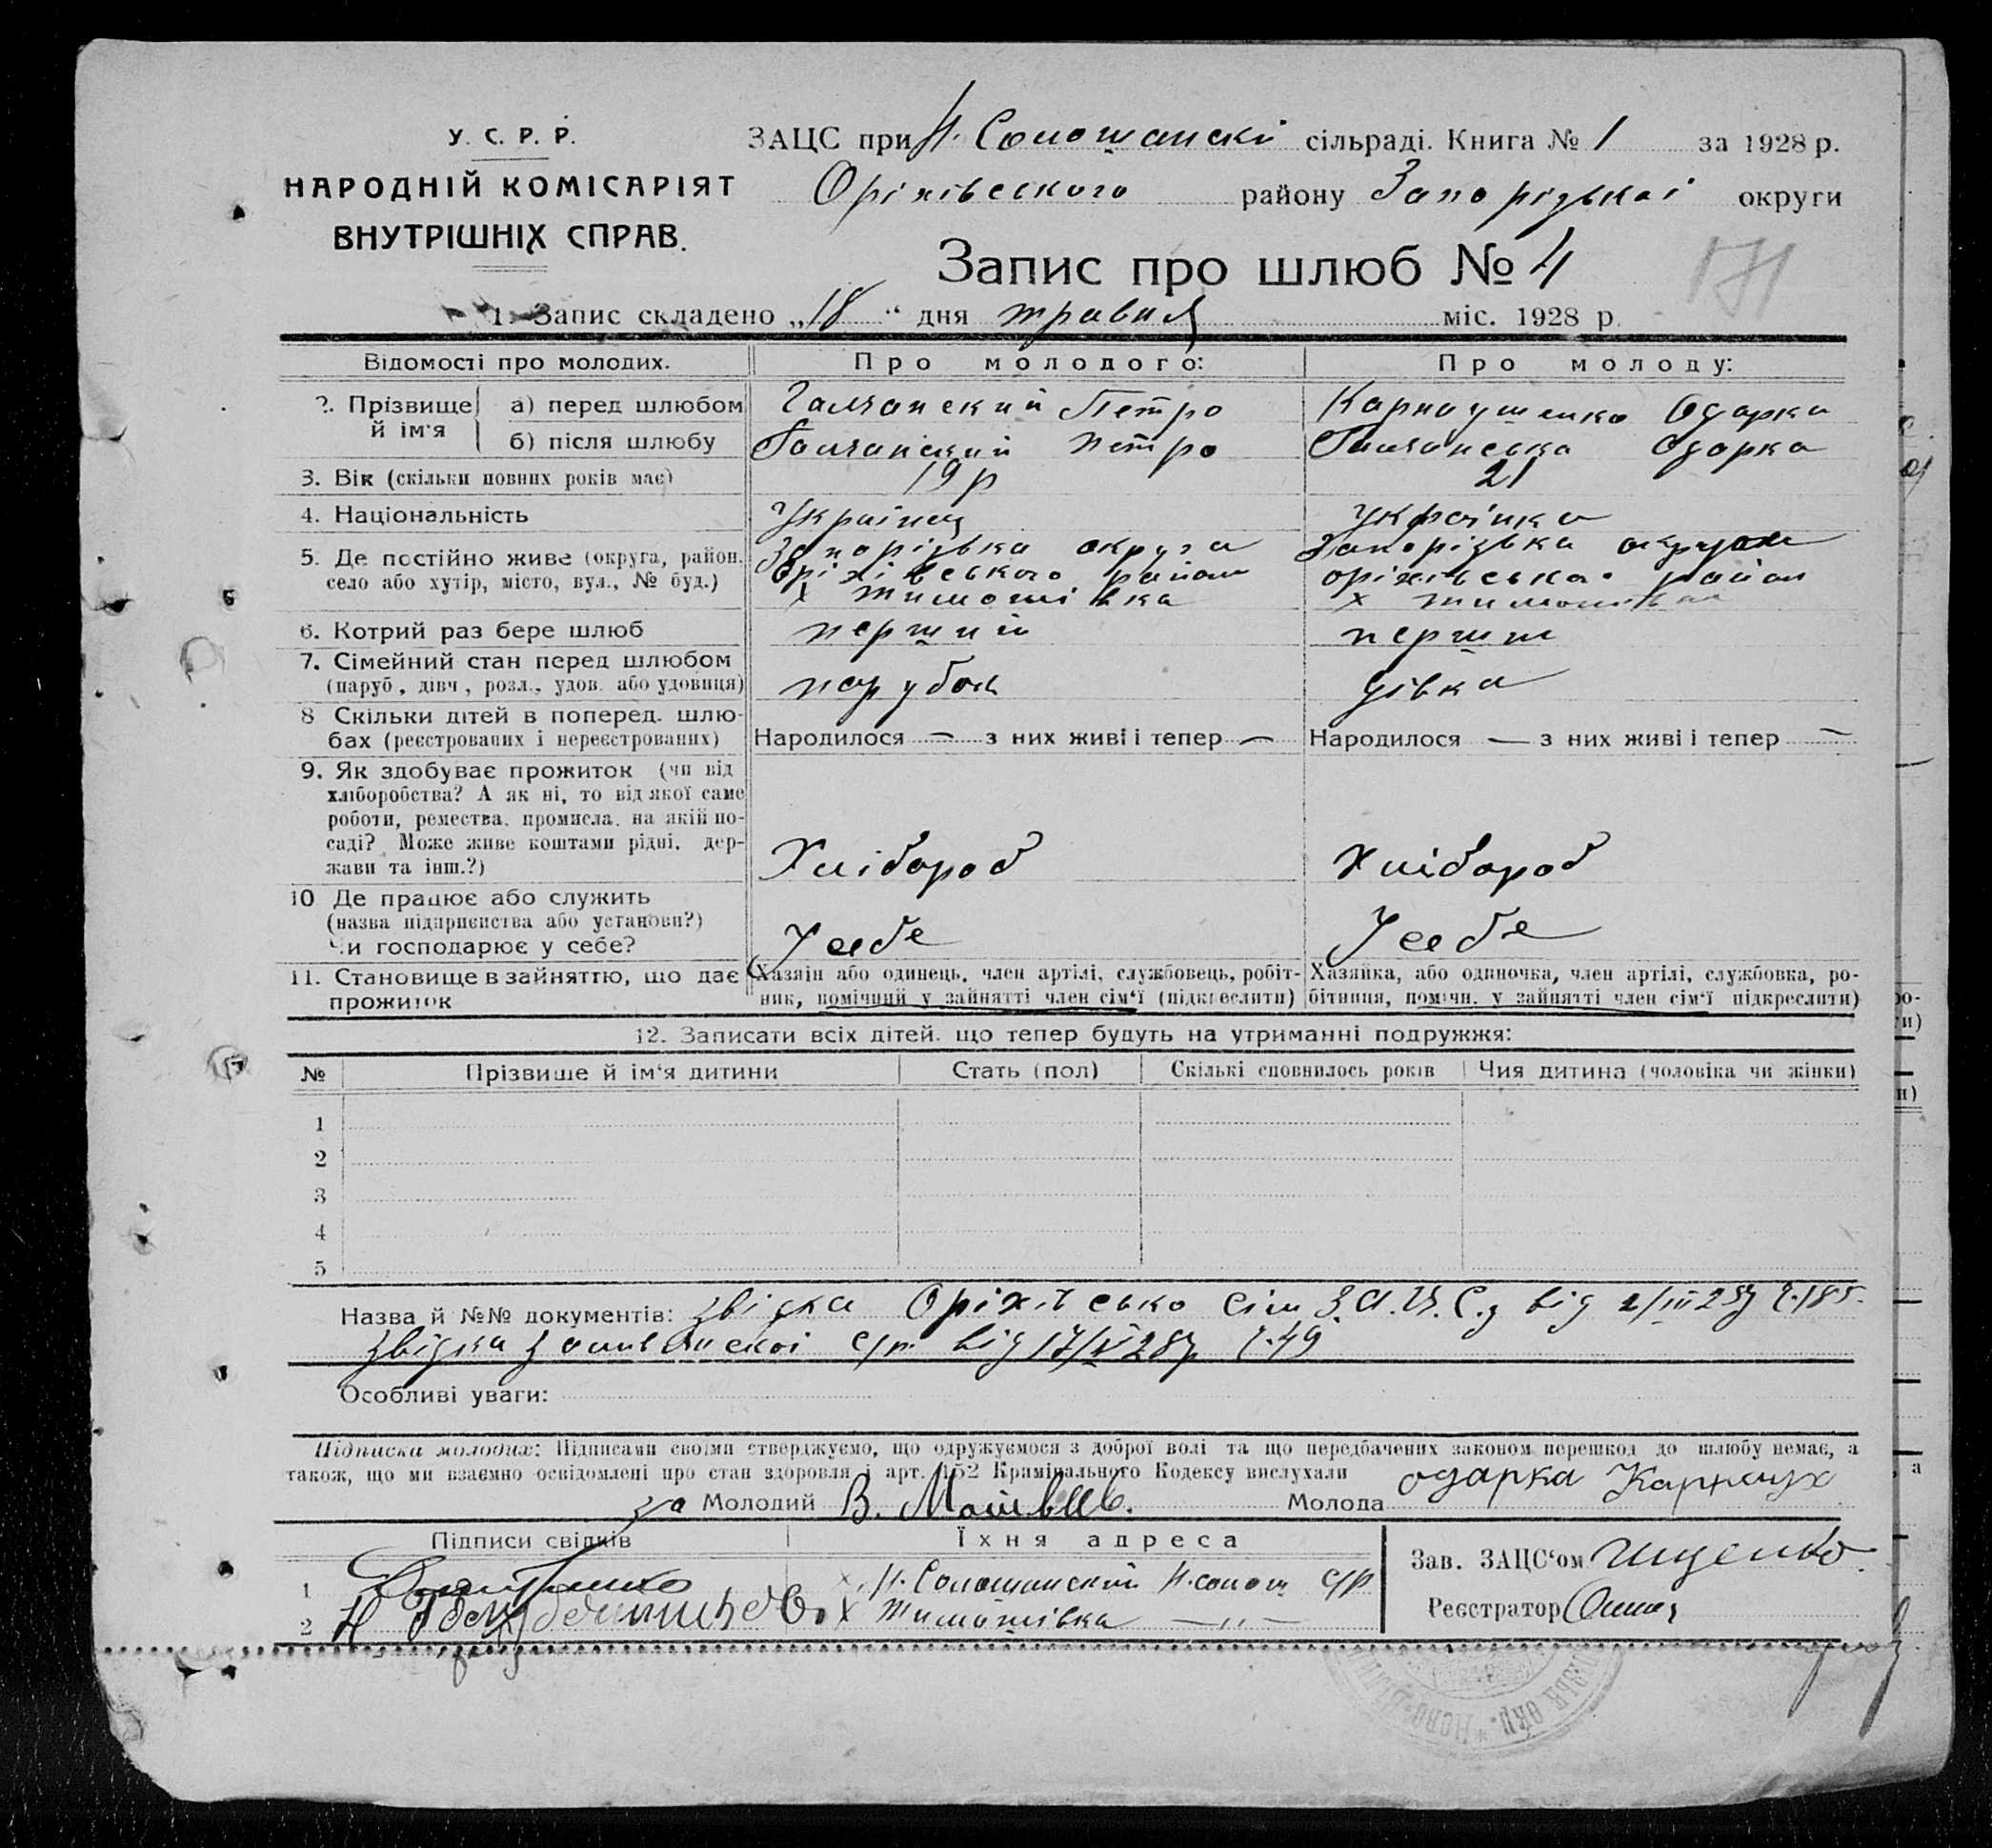 У. С. Р. Р.
НАРОДНІЙ КОМІСАРІЯТ
ВНУТРІШНІХ СПРАВ.
ЗАЦС при Н. Солошанскі сільраді. Книга № 1 за 1928 р.
Оріхівського району Запорізькоі округи
Запис про шлюб № 4
171
1. Запис складено „18“ дня травня міс. 1928 р.
Відомості про молодих.
Про молодого:
Про молоду:
2. Прізвище й ім'я
а) перед шлюбом
Галчанский Петро
Карнаушенко Одарка
б) після шлюбу
Галчанский Петро
Галчанська Одарка
3. Вік (скільки повних років має)
19 р
21
4. Національність
Українец
Українка
5. Де постійно живе (округа, район,
село або хутір, місто, вул., № буд.)
Запорізька округа
Оріхівського район
х Тимошівка
Запорізька округа
Оріхівська район
х Тимошівка
6. Котрий раз бере шлюб
перший
перши
7. Сімейний стан перед шлюбом
(паруб., дівч., розл., удов. або удовиця)
парубок
дівка
8 Скільки дітей в поперед. шлю-
бах (реєстрованих і нереєстрованих)
Народилося — з них живі і тепер —
Народилося — з них живі і тепер —
9. Як здобуває прожиток (чи від
хліборобства? А як ні, то від якої саме
роботи, ремества, промисла, на якій по-
саді? Може живе коштами рідні, дер-
жави та інш.?)
Хлібороб
Хлібороб
10 Де працює або служить
(назва підприємства або установи?)
Чи господарює у себе?
У себе
У себе
11. Становище в зайняттю, що дає
прожиток
Хазяїн або одинець, член артілі, службовець, робіт-
ник, помічний у зайнятті член сім'ї (підкреслити)
Хазяйка, або одиночка, член артілі, службовка, ро-
бітниця, помічн. у зайнятті член сім'ї підкреслити)
12. Записати всіх дітей, що тепер будуть на утриманні подружжя:
№ Прізвище й ім'я дитини Стать (пол) Скількі сповнилось років Чия дитина (чоловіка чи жінки)
1
2
3
4
5
Назва й №№ документів: звідка Оріхівсько З.А.Ц.С.у від 2/III 28р Ч.185.
звідка с/р від 17/V 28р Ч.49
Особливі уваги:
Підписка молодих: Підписами своїми стверджуємо, що одружуємося з доброї волі та що передбачених законом перешкод до шлюбу немає, а
також, що ми взаємно освідомлені про стан здоровля і арт. 152 Крамінального Кодексу вислухали
за Молодий В. Матвеев. Молода Одарка Карнаух
Підписи свідків
Їхня адреса
1
х. Н. Солошанский Н. солош с/р
2
х Тимошівка —„—
Зав. ЗАЦС'ом Гищенко
Реєстратор